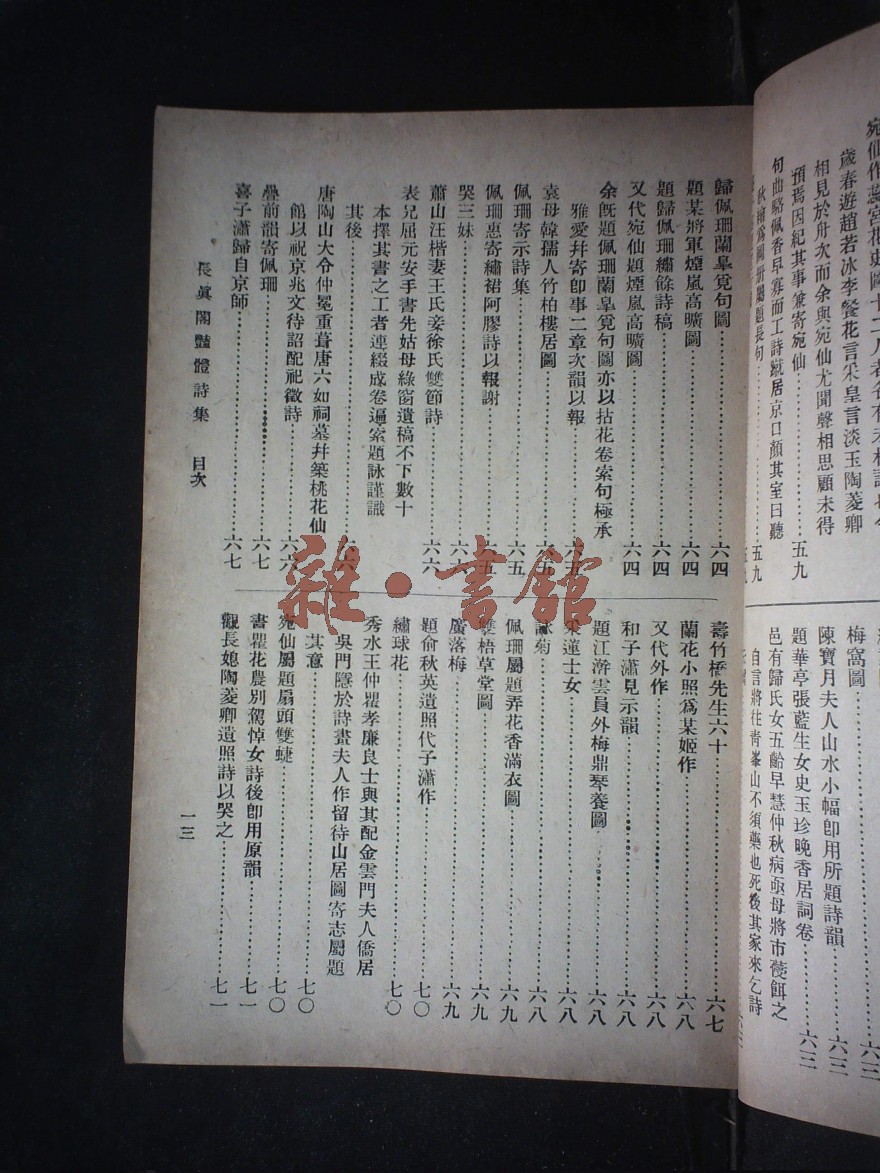 相見於舟次而余與宛仙尤聞聲相思顧未得
預焉因紀其事兼寄宛仙……五九
梅窩圖……六三
陳寶月夫人山水小幅卽用所題詩韻……六三
題華亭張藍生女史玉珍晚香居詞卷……六三
邑有歸氏女五齡早慧仲秋病亟母將市餞餌之
自言將往靑峯山不須藥也死後其家來乞詩
歸佩珊蘭臯覓句圖……六四
題某將軍煙嵐高曠圖……六四
題歸佩珊繡餘詩稿……六四
又代宛仙題煙嵐高曠圖……六四
余旣題佩珊蘭臯覓句圖亦以拈花卷索句極承
雅愛幷寄卽事二章次韻以報……六五
袁母韓孺人竹柏樓居圖……六五
佩珊寄示詩集……六五
佩珊惠寄繡裙阿膠詩以報謝……六五
哭三妹……六六
蕭山汪楷妻王氏妾徐氏雙節詩……六六
表兄屈元安手書先姑母綠窗遺稿不下數十
本擇其書之工者連綴成卷遍索題詠謹識
其後……六六
唐陶山大令仲冕重葺唐六如祠墓幷築桃花仙
館以祝京兆文待詔配祀徵詩……六六
疊前韻寄佩珊……六七
喜子瀟歸自京師……六七
壽竹橋先生六十……六七
蘭花小照爲某姬作……六八
又代外作……六八
和子瀟見示韻……六八
題江滸雲員外梅鼎琴養圖……六八
采蓮士女……六八
詠菊……六八
佩珊屬題弄花香滿衣圖……六九
雙梧草堂圖……六九
廣落梅……六九
題俞秋英遺照代子瀟作……七〇
繡球花……七〇
秀水王仲瞿孝廉良士與其配金雲門夫人僑居
吳門隱於詩畫夫人作留待山居圖寄志屬題
其意……七〇
宛仙屬題扇頭雙蜨……七〇
書瞿花農別駕悼女詩後卽用原韻……七一
觀長媳陶菱卿遺照詩以哭之……七一
長眞閣豔體詩集 目次
一三
雜·書館